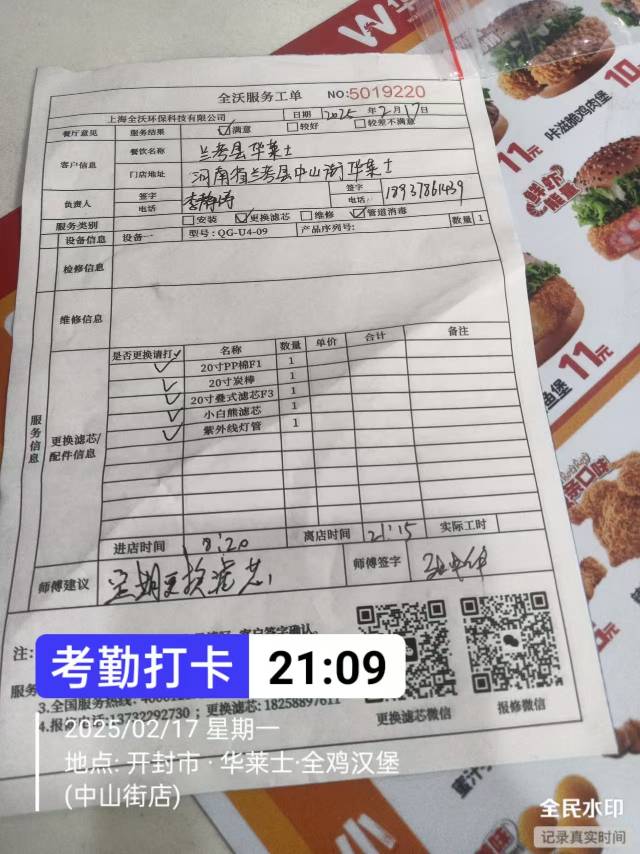 全沃服务工单 NO:5019220
上海全沃环保科技有限公司 日期 2025 年 2 月 17 日
餐厅意见 服务结果 ☑满意 □较好 □较差不满意
客户信息 餐饮名称 兰考县华莱士
门店地址 河南省兰考县中山街华莱士
负责人 签字 电话 李静涛 签字 电话: 18937861439
服务类别 □安装 ☑更换滤芯 □维修 ☑管道消毒
设备信息 设备一 型号:QG-U4-09 产品序列号: 数量 1
检修信息
维修信息
服务信息
更换滤芯/配件信息
是否更换请打✓ 名称 数量 单价 合计 备注
✓ 20寸PP棉F1 1
✓ 20寸炭棒 1
✓ 20寸叠式滤芯F3 1
✓ 小白熊滤芯 1
✓ 紫外线灯管 1
进店时间 离店时间 21:15 实际工时
师傅建议 定期更换滤芯 师傅签字
注:
服务
3.全国服务热线:
4.报修电话:13732292730 ; 更换滤芯:18258897611
更换滤芯微信 报修微信
考勤打卡 21:09
2025/02/17 星期一
地点: 开封市·华莱士·全鸡汉堡
(中山街店)
全民水印
记录真实时间
10
咔滋脆鸡肉堡
11元
11元
鱼堡